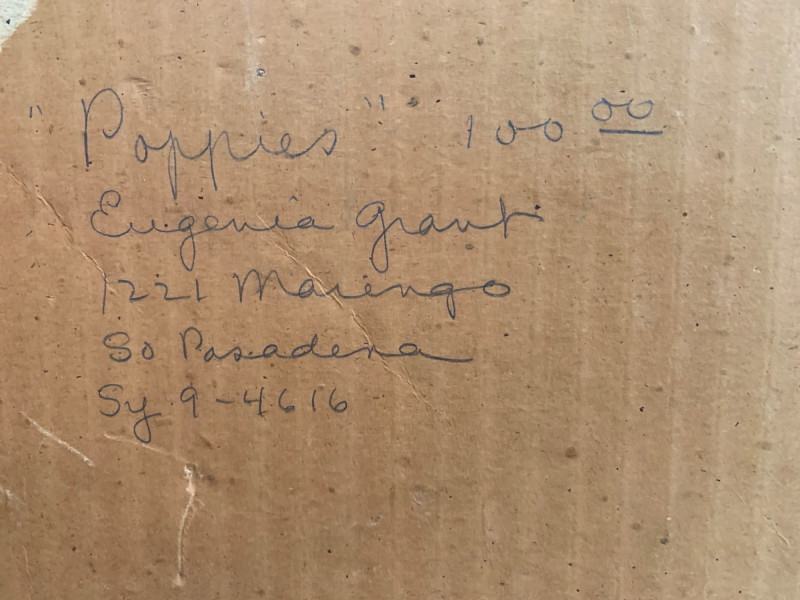 "Poppies" 100 00
Eugenia Grant
1221 Marengo
So Pasadena
Sy 9-4616